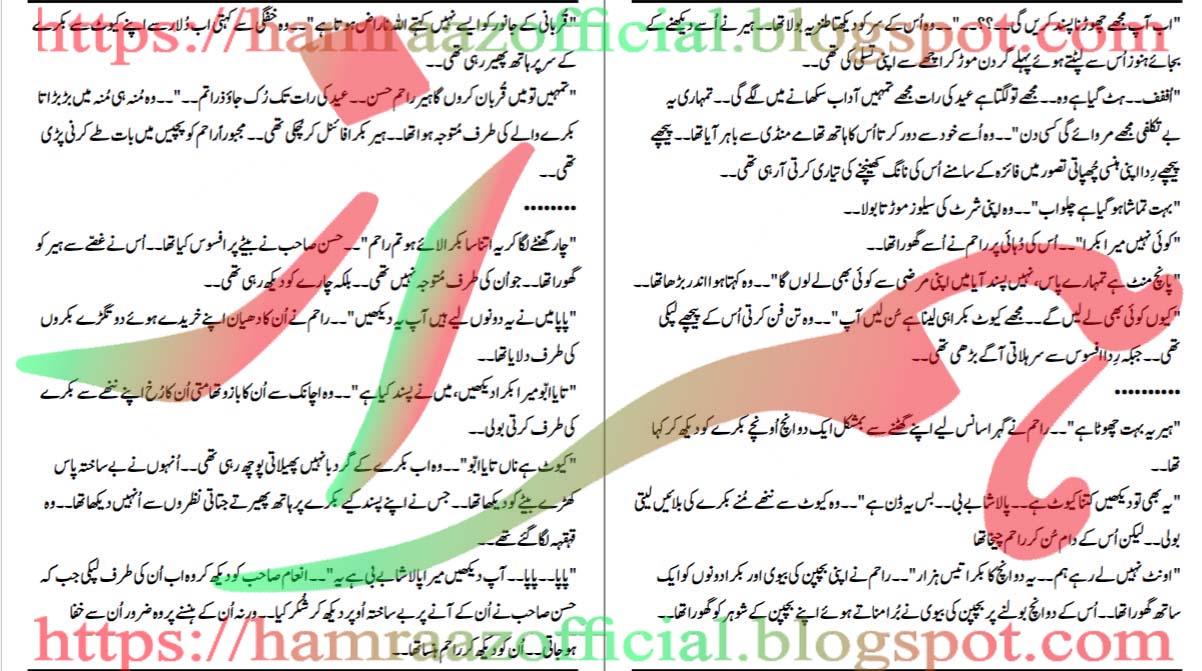 https://hamraazofficial.blogspot.com
"اب آپ مجھے چھوڑنا پسند کریں گی۔۔؟؟؟۔۔"۔۔وہ اُس کے سر کو دیکھتا طنزیہ بولا تھا۔۔ہیر نے اُسے دیکھنے کے
بجائے ہنوز اُس سے لپٹتے ہوئے پہلے گردن موڑ کر اچھے سے اپنی تسلی کی تھی۔۔
"اُففف۔۔ہٹ گیا ہے وہ۔۔مجھے تو لگتا ہے عید کی رات مجھے تمہیں آداب سکھانے میں لگے گی۔۔تمہاری یہ
بے تکلفی مجھے مروائے گی کسی دن"۔۔وہ اُسے خود سے دور کرتا اُس کا ہاتھ تھامے منڈی سے باہر آیا تھا۔۔پیچھے
پیچھے رِدا اپنی ہنسی چُھپاتی تصور میں فائزہ کے سامنے اُس کی ٹانگ کھینچنے کی تیاری کرتی آرہی تھی۔۔
"بہت تماشا ہو گیا ہے چلو اب"۔۔وہ اپنی شرٹ کی سلیوز موڑتا بولا۔۔
"کوئی نہیں میرا بکرا"۔۔اُس کی دُہائی پر راحم نے اُسے گھورا تھا۔۔
"پانچ منٹ ہے تمہارے پاس، نہیں پسند آیا میں اپنی مرضی سے کوئی بھی لے لوں گا"۔۔وہ کہتا ہوا اندر بڑھا تھا۔۔
"کیوں کوئی بھی لے لیں گے۔۔مجھے کیوٹ بکرا ہی لینا ہے سُن لیں آپ"۔۔وہ تن فن کرتی اُس کے پیچھے لپکی
تھی۔۔جبکہ رِدا افسوس سے سر ہلاتی آگے بڑھی تھی۔۔
••••••••••
"ہیر یہ بہت چھوٹا ہے"۔۔راحم نے گہرا سانس لیے اپنے گھٹنے سے بمشکل ایک دو انچ اُونچے بکرے کو دیکھ کر کہا
تھا۔۔
"یہ بھی تو دیکھیں کتنا کیوٹ ہے۔۔پالا شا بے بی۔۔بس یہ ڈن ہے"۔۔وہ کیوٹ سے ننھے مُنے بکرے کی بلائیں لیتی
بولی۔۔لیکن اُس کے دام سُن کر راحم چیخا تھا
"اونٹ نہیں لے رہے ہم۔۔یہ دو انچ کا بکرا تیس ہزار"۔۔راحم نے اپنی بچپن کی بیوی اور بکرا دونوں کو ایک
ساتھ گھورا تھا۔۔اُس کے دو انچ بولنے پر بچپن کی بیوی نے بُرا مناتے ہوئے اپنے بچپن کے شوہر کو گھورا تھا۔۔
"قربانی کے جانور کو ایسے نہیں کہتے اللہ ناراض ہوتا ہے"۔۔وہ خفگی سے کہتی اب دُلار سے اپنے کیوٹ سے بکرے
کے سر پر ہاتھ پھیر رہی تھی۔۔
"تمہیں تو میں قُربان کروں گا ہیر راحم حسن۔۔عید کی رات تک رُک جاؤ ذرا تم۔۔"۔۔وہ مُنہ ہی مُنہ میں بڑبڑاتا
بکرے والے کی طرف مُتوجہ ہوا تھا۔۔ہیر بکرا فائنل کر چُکی تھی۔۔مجبوراً راحم کو پچیس میں بات طے کرنی پڑی
تھی۔۔
••••••••
"چار گھنٹے لگا کر یہ اتنا سا بکرا لائے ہو تم راحم"۔۔حسن صاحب نے بیٹے پر افسوس کیا تھا۔۔اُس نے غصّے سے ہیر کو
گھورا تھا۔۔جو اُن کی طرف مُتوجہ نہیں تھی۔۔بلکہ چارے کو دیکھ رہی تھی۔۔
"پاپا میں نے یہ دونوں لیے ہیں آپ یہ دیکھیں"۔۔راحم نے اُن کا دھیان اپنے خریدے ہوئے دو تگڑے بکروں
کی طرف دلایا تھا۔۔
"تایا ابّو میرا بکرا دیکھیں، میں نے پسند کیا ہے"۔۔وہ اچانک سے اُن کا بازو تھامتی اُن کا رُخ اپنے ننھے سے بکرے
کی طرف کرتی بولی۔۔
"کیوٹ ہے ناں تایا ابّو"۔۔وہ اب بکرے کے گرد بانہیں پھیلاتی پوچھ رہی تھی۔۔اُنہوں نے بے ساختہ پاس
کھڑے بیٹے کو دیکھا تھا۔۔جس نے اپنے پسند کیے بکرے پر ہاتھ پھیرتے جتاتی نظروں سے اُنہیں دیکھا تھا۔۔وہ
قہقہہ لگا گئے تھے۔۔
"پاپا۔۔پاپا۔۔آپ دیکھیں میرا پالا شا بے بی ہے یہ"۔۔انعام صاحب کو دیکھ کر وہ اب اُن کی طرف لپکی جب کہ
حسن صاحب نے اُن کے آنے پر بے ساختہ اُوپر دیکھ کر شُکر کیا۔۔ورنہ اُن کے ہنسنے پر وہ ضرور اُن سے خفا
ہو جاتی۔۔اُن کو دیکھ کر راحم ہنسا تھا۔۔
https://hamraazofficial.blogspot.com
ہمراز